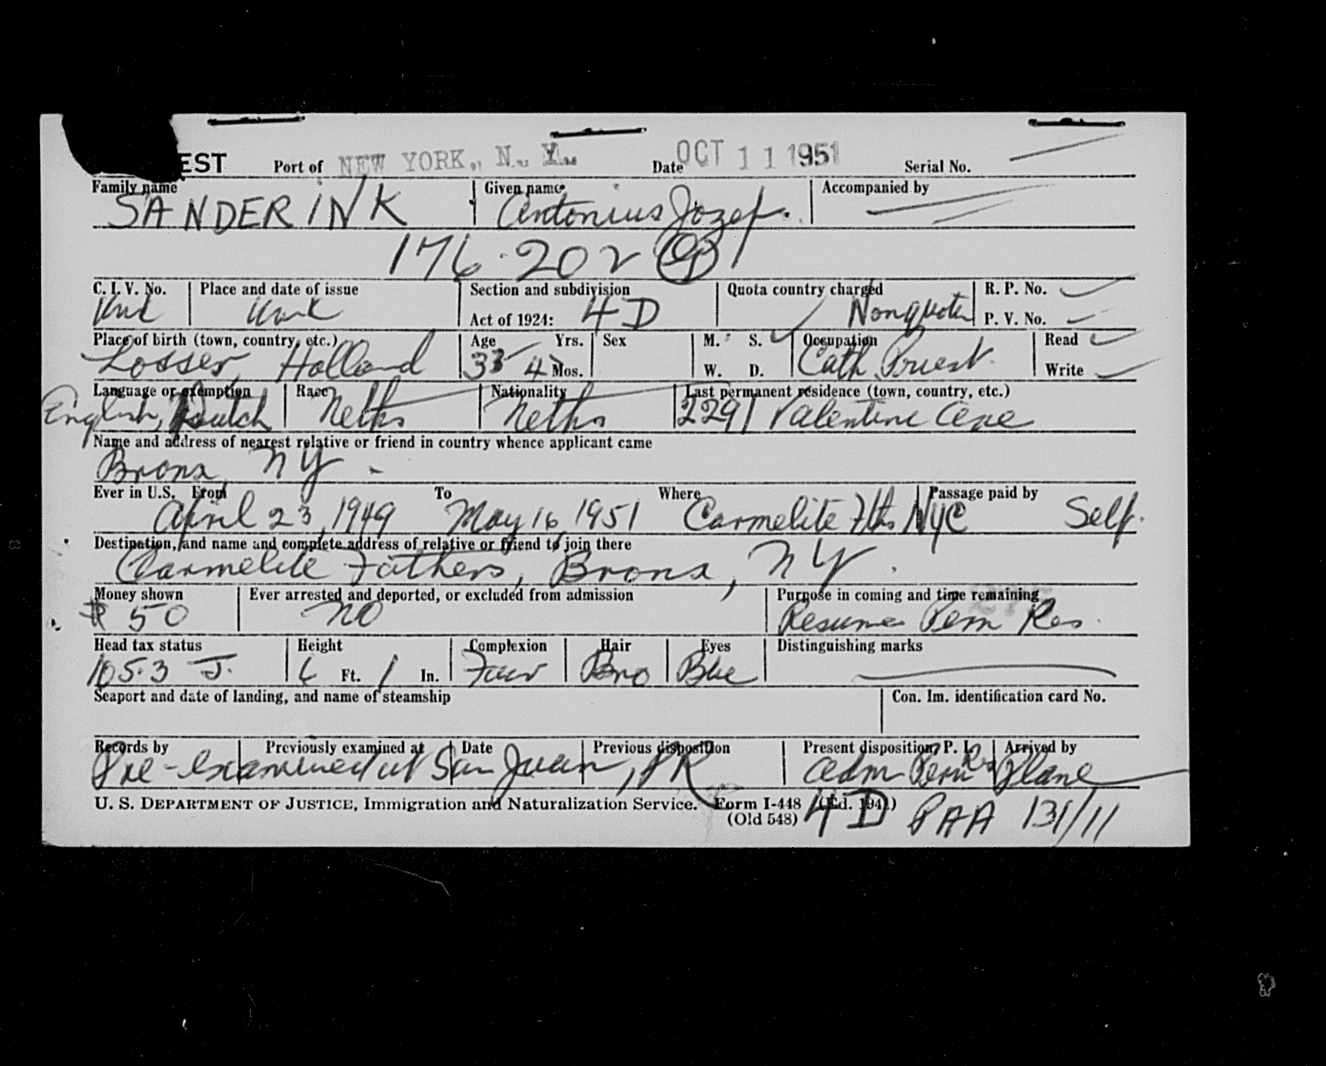 EST Port of NEW YORK, N. Y. Date OCT 11 1951 Serial No.
Family name Given name Accompanied by
SANDERINK Antonius Jozef.
176-202
C. I. V. No. Place and date of issue Section and subdivision Quota country charged R. P. No.
Unk Unk Act of 1924: 4D Nonquota P. V. No.
Place of birth (town, country, etc.) Age Yrs. Sex M. S. Occupation Read
Losser, Holland 33 4 Mos. W. D. Cath Priest. Write
Language or exemption Race Nationality Last permanent residence (town, country, etc.)
English, Dutch Neths Neths 2291 Valentine Ave
Name and address of nearest relative or friend in country whence applicant came
Bronx NY -
Ever in U.S. From To Where Passage paid by
April 23, 1949 May 16, 1951 Carmelite Fths NYC Self.
Destination, and name and complete address of relative or friend to join there
Carmelite Fathers, Bronx, NY.
Money shown Ever arrested and deported, or excluded from admission Purpose in coming and time remaining
$50 NO Resume Perm Res.
Head tax status Height Complexion Hair Eyes Distinguishing marks
105.3 J. 6 Ft. 1 In. Fair Bro Blue
Seaport and date of landing, and name of steamship Con. Im. identification card No.
Records by Previously examined at Date Previous disposition Present disposition P. I. Arrived by
Pre-examined at San Juan, PR Adm Perm Res Plane
U. S. DEPARTMENT OF JUSTICE, Immigration and Naturalization Service. Form I-448 (Ed. 1941) 4D PAA 131/11
(Old 548)